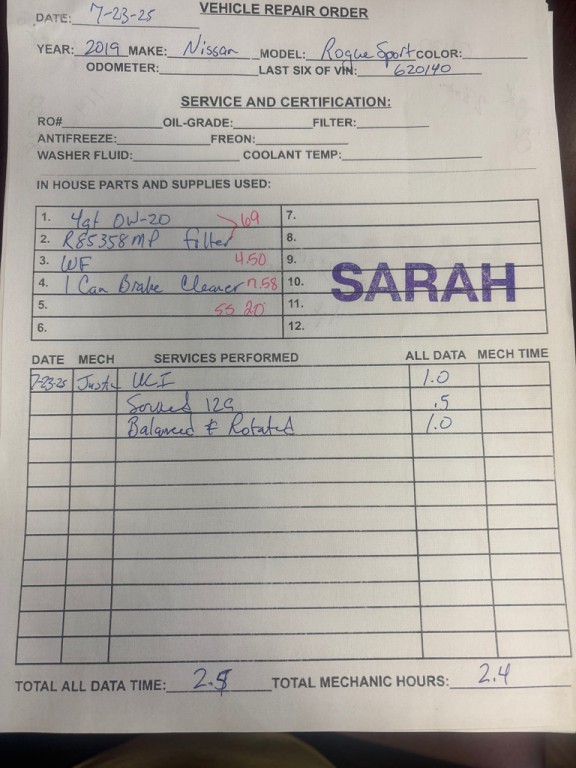 VEHICLE REPAIR ORDER
DATE: 7-23-25
YEAR: 2019 MAKE: Nissan MODEL: Rogue Sport COLOR:
ODOMETER: LAST SIX OF VIN: 620140
SERVICE AND CERTIFICATION:
RO# OIL-GRADE: FILTER:
ANTIFREEZE: FREON:
WASHER FLUID: COOLANT TEMP:
IN HOUSE PARTS AND SUPPLIES USED:
1. 4qt OW-20 69 7.
2. R85358MP filter 8.
3. WF 4.50 9.
4. 1 Can Brake Cleaner 7.58 10.
5. SS 20 11.
6. 12.
SARAH
DATE MECH SERVICES PERFORMED ALL DATA MECH TIME
7-23-25 UCI 1.0
.5
Balanced & Rotated 1.0
TOTAL ALL DATA TIME: 2.5 TOTAL MECHANIC HOURS: 2.4